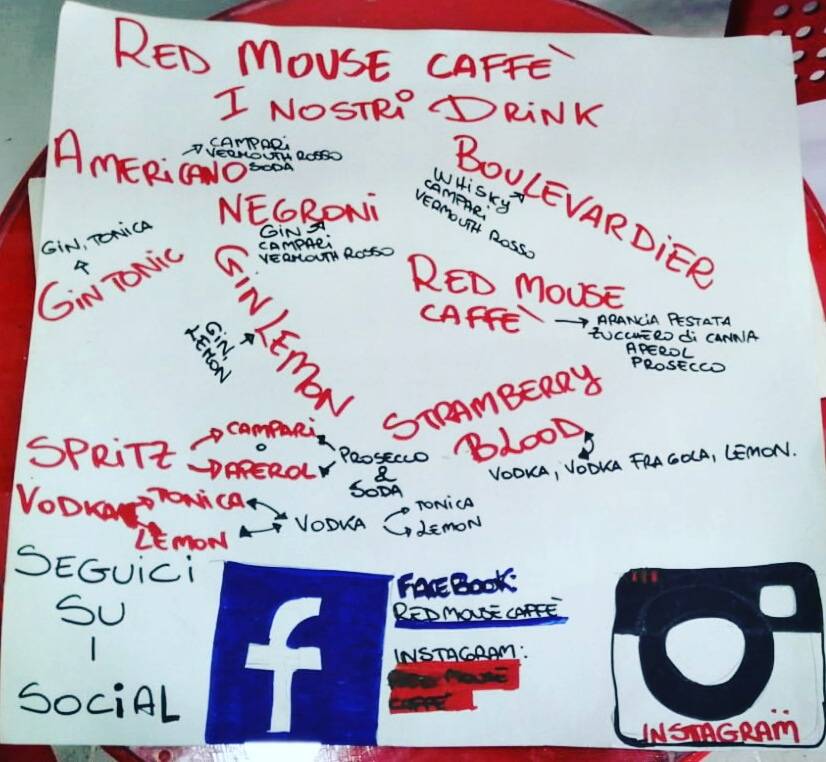 RED MOUSE CAFFÈ
I NOSTRI DRINK
AMERICANO
CAMPARI
VERMOUTH ROSSO
SODA
BOULEVARDIER
WHISKY
CAMPARI
VERMOUTH ROSSO
NEGRONI
GIN
CAMPARI
VERMOUTH ROSSO
GIN, TONICA
GIN TONIC
GIN LEMON
GIN,
LEMON
RED MOUSE
CAFFÈ
ARANCIA PESTATA
ZUCCHERO di CANNA
APEROL
PROSECCO
STRAMBERRY
BLOOD
VODKA, VODKA FRAGOLA, LEMON.
SPRITZ
CAMPARI
O
APEROL
PROSECCO
&
SODA
VODKA
TONICA
LEMON
VODKA
TONICA
LEMON
SEGUICI
SU
I
SOCIAL
f
FACEBOOK:
RED MOUSE CAFFÈ
INSTAGRAM:
RED MOUSE
CAFFÈ
INSTAGRAM